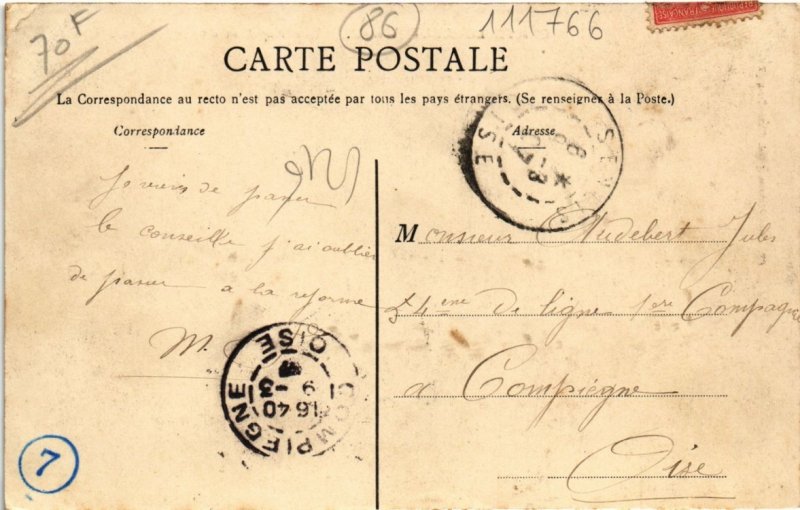 70F
86
111766
CARTE POSTALE
La Correspondance au recto n'est pas acceptée par tous les pays étrangers. (Se renseigner à la Poste.)
Correspondance
Adresse
Je viens de passer
le conseille j'ai oublier
de passer a la reforme
M.
Monsieur Audebert Jules
54 eme de ligne 1ere Compagnie
a Compiègne
Oise
COMPIEGNE
OISE
16 40
9 - 3
SENLIS
OISE
7